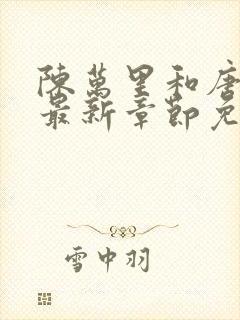 陳萬里和唐
最新章節免
雪中羽